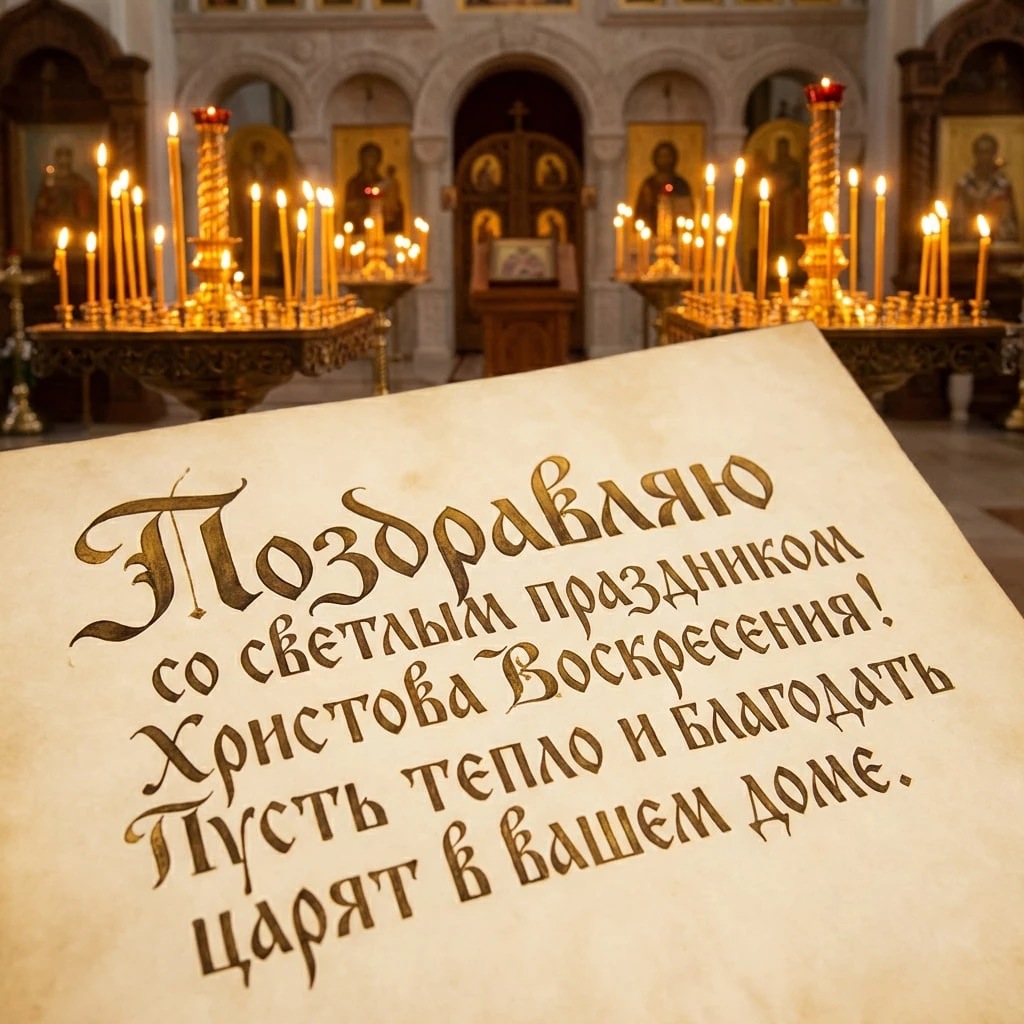 Поздравляю
со светлым праздником
Христова Воскресения!
Пусть тепло и благодать
царят в вашем доме.